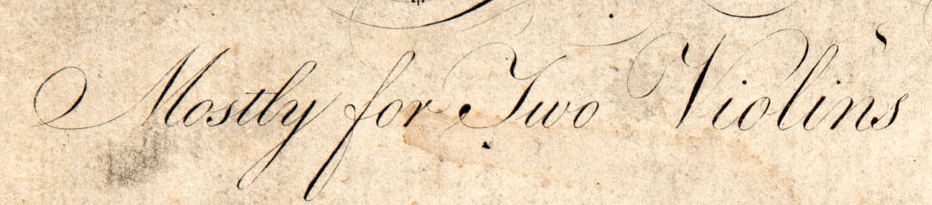 Mostly for Two Violins